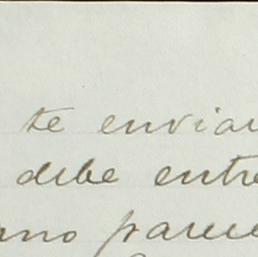 te enviar
debe entre
ano parece